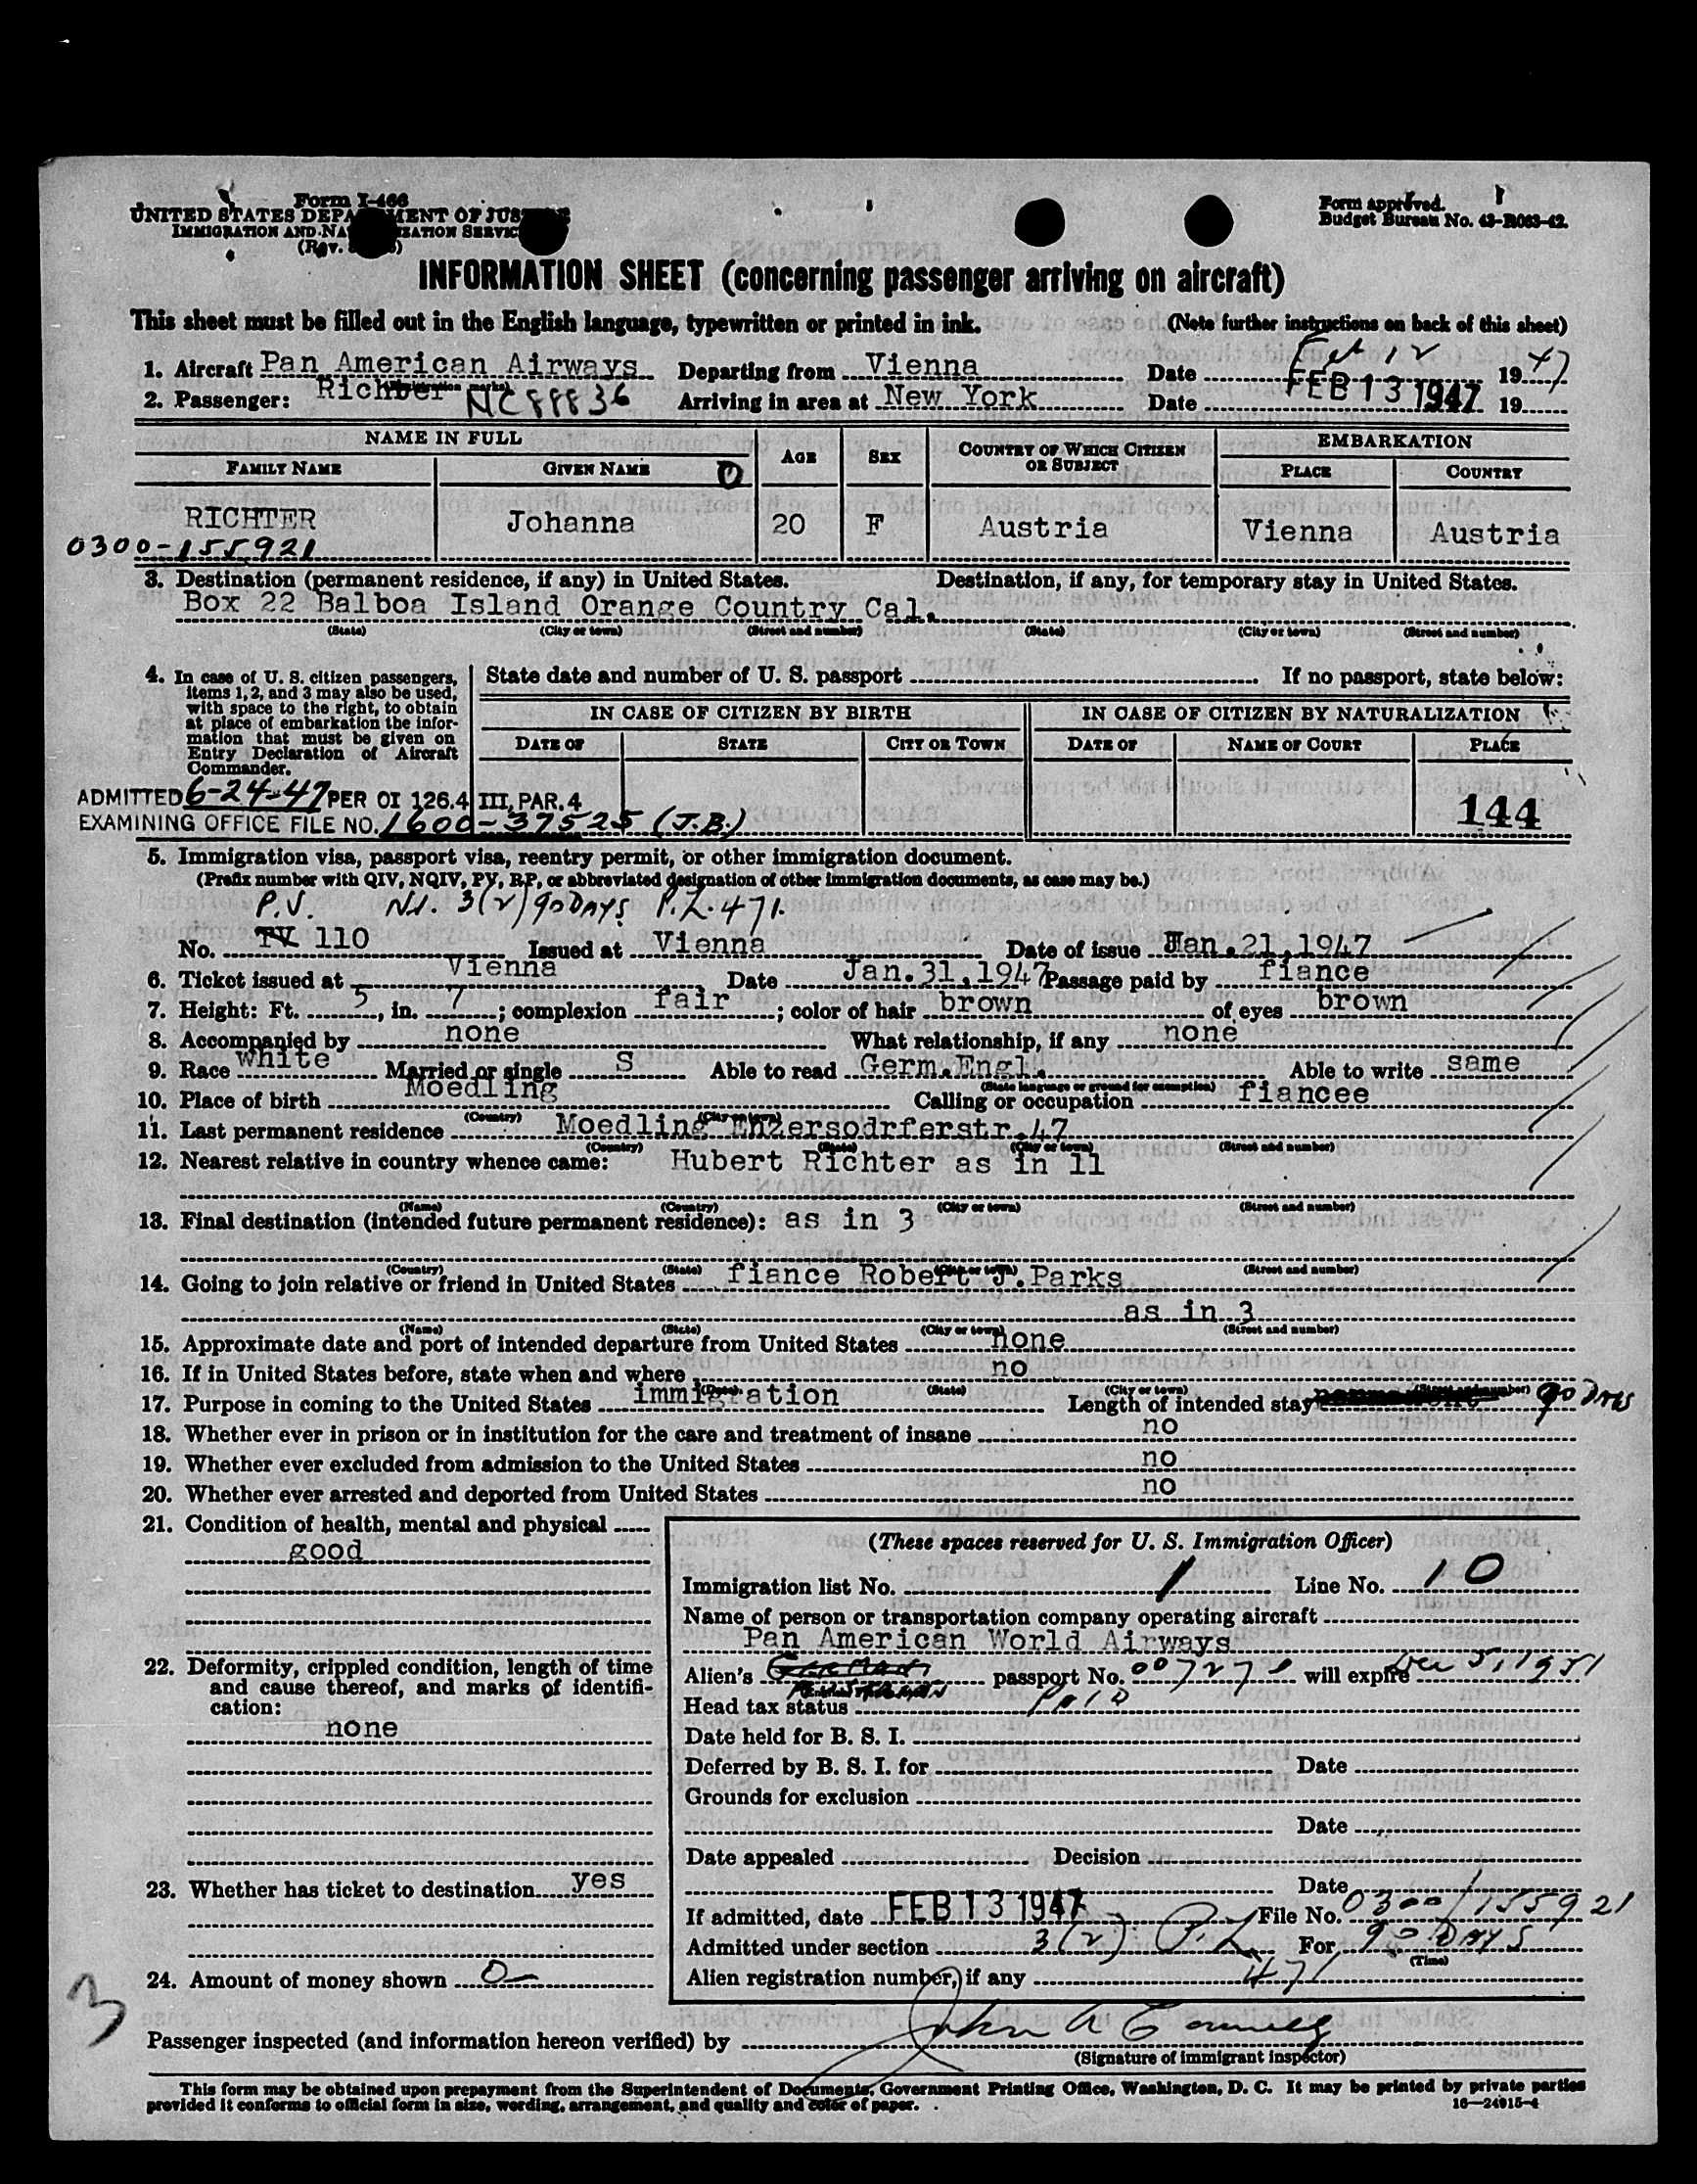 Form I-466
UNITED STATES DEPARTMENT OF JUSTICE
IMMIGRATION AND NATURALIZATION SERVICE
(Rev.
Form approved.
Budget Bureau No. 43-R063-42.
INFORMATION SHEET (concerning passenger arriving on aircraft)
This sheet must be filled out in the English language, typewritten or printed in ink. (Note further instructions on back of this sheet)
1. Aircraft Pan American Airways Departing from Vienna Date Feb 12 1947
(Registration marks)
2. Passenger: Richter NC88836 Arriving in area at New York Date FEB 13 1947 19
NAME IN FULL
FAMILY NAME GIVEN NAME AGE SEX COUNTRY OF WHICH CITIZEN OR SUBJECT EMBARKATION PLACE COUNTRY
RICHTER Johanna 20 F Austria Vienna Austria
0300-155921
3. Destination (permanent residence, if any) in United States. Destination, if any, for temporary stay in United States.
Box 22 Balboa Island Orange Country Cal.
(State) (City or town) (Street and number) (State) (City or town) (Street and number)
4. In case of U. S. citizen passengers, items 1, 2, and 3 may also be used, with space to the right, to obtain at place of embarkation the information that must be given on Entry Declaration of Aircraft Commander.
State date and number of U. S. passport If no passport, state below:
IN CASE OF CITIZEN BY BIRTH IN CASE OF CITIZEN BY NATURALIZATION
DATE OF STATE CITY OR TOWN DATE OF NAME OF COURT PLACE
ADMITTED 6-24-47 PER OI 126.4 III, PAR. 4
EXAMINING OFFICE FILE NO. 1600-37525 (J.B.)
144
5. Immigration visa, passport visa, reentry permit, or other immigration document.
(Prefix number with QIV, NQIV, PV, RP, or abbreviated designation of other immigration documents, as case may be.)
P.V. 3(2) 90 DAYS P.L. 471.
No. TV 110 Issued at Vienna Date of issue Jan.21,1947
6. Ticket issued at Vienna Date Jan.31,1947 Passage paid by fiance
7. Height: Ft. 5, in. 7; complexion fair; color of hair brown of eyes brown
8. Accompanied by none What relationship, if any none
9. Race white Married or single S Able to read Germ.Engl. Able to write same
(State language or ground for exemption)
10. Place of birth Moedling Calling or occupation fiancee
(Country) (City or town)
11. Last permanent residence Moedling Enzersodrferstr.47
(Country) (State) (City or town) (Street and number)
12. Nearest relative in country whence came: Hubert Richter as in 11
(Name) (Country) (City or town) (Street and number)
13. Final destination (intended future permanent residence): as in 3
(Country) (State) (City or town) (Street and number)
14. Going to join relative or friend in United States fiance Robert J.Parks
as in 3
(Name) (State) (City or town) (Street and number)
15. Approximate date and port of intended departure from United States none
16. If in United States before, state when and where no
(Date) (State) (City or town) (Street and number)
17. Purpose in coming to the United States immigration Length of intended stay 90 DAYS
18. Whether ever in prison or in institution for the care and treatment of insane no
19. Whether ever excluded from admission to the United States no
20. Whether ever arrested and deported from United States no
21. Condition of health, mental and physical
good
22. Deformity, crippled condition, length of time and cause thereof, and marks of identification:
none
23. Whether has ticket to destination yes
24. Amount of money shown 0
3
(These spaces reserved for U. S. Immigration Officer)
Immigration list No. 1 Line No. 10
Name of person or transportation company operating aircraft
Pan American World Airways
Alien's GERMAN passport No. will expire Dec 5, 1951
AUSTRIAN
Head tax status PAID
Date held for B. S. I.
Deferred by B. S. I. for Date
Grounds for exclusion
Date
Date appealed Decision
Date
If admitted, date FEB 13 1947 File No. 0300/155921
Admitted under section 3(2) P.L. 471 For 90 DAYS
(Time)
Alien registration number, if any
Passenger inspected (and information hereon verified) by John A
(Signature of immigrant inspector)
This form may be obtained upon prepayment from the Superintendent of Documents, Government Printing Office, Washington, D. C. It may be printed by private parties
provided it conforms to official form in size, wording, arrangement, and quality and color of paper.
16—24915-4